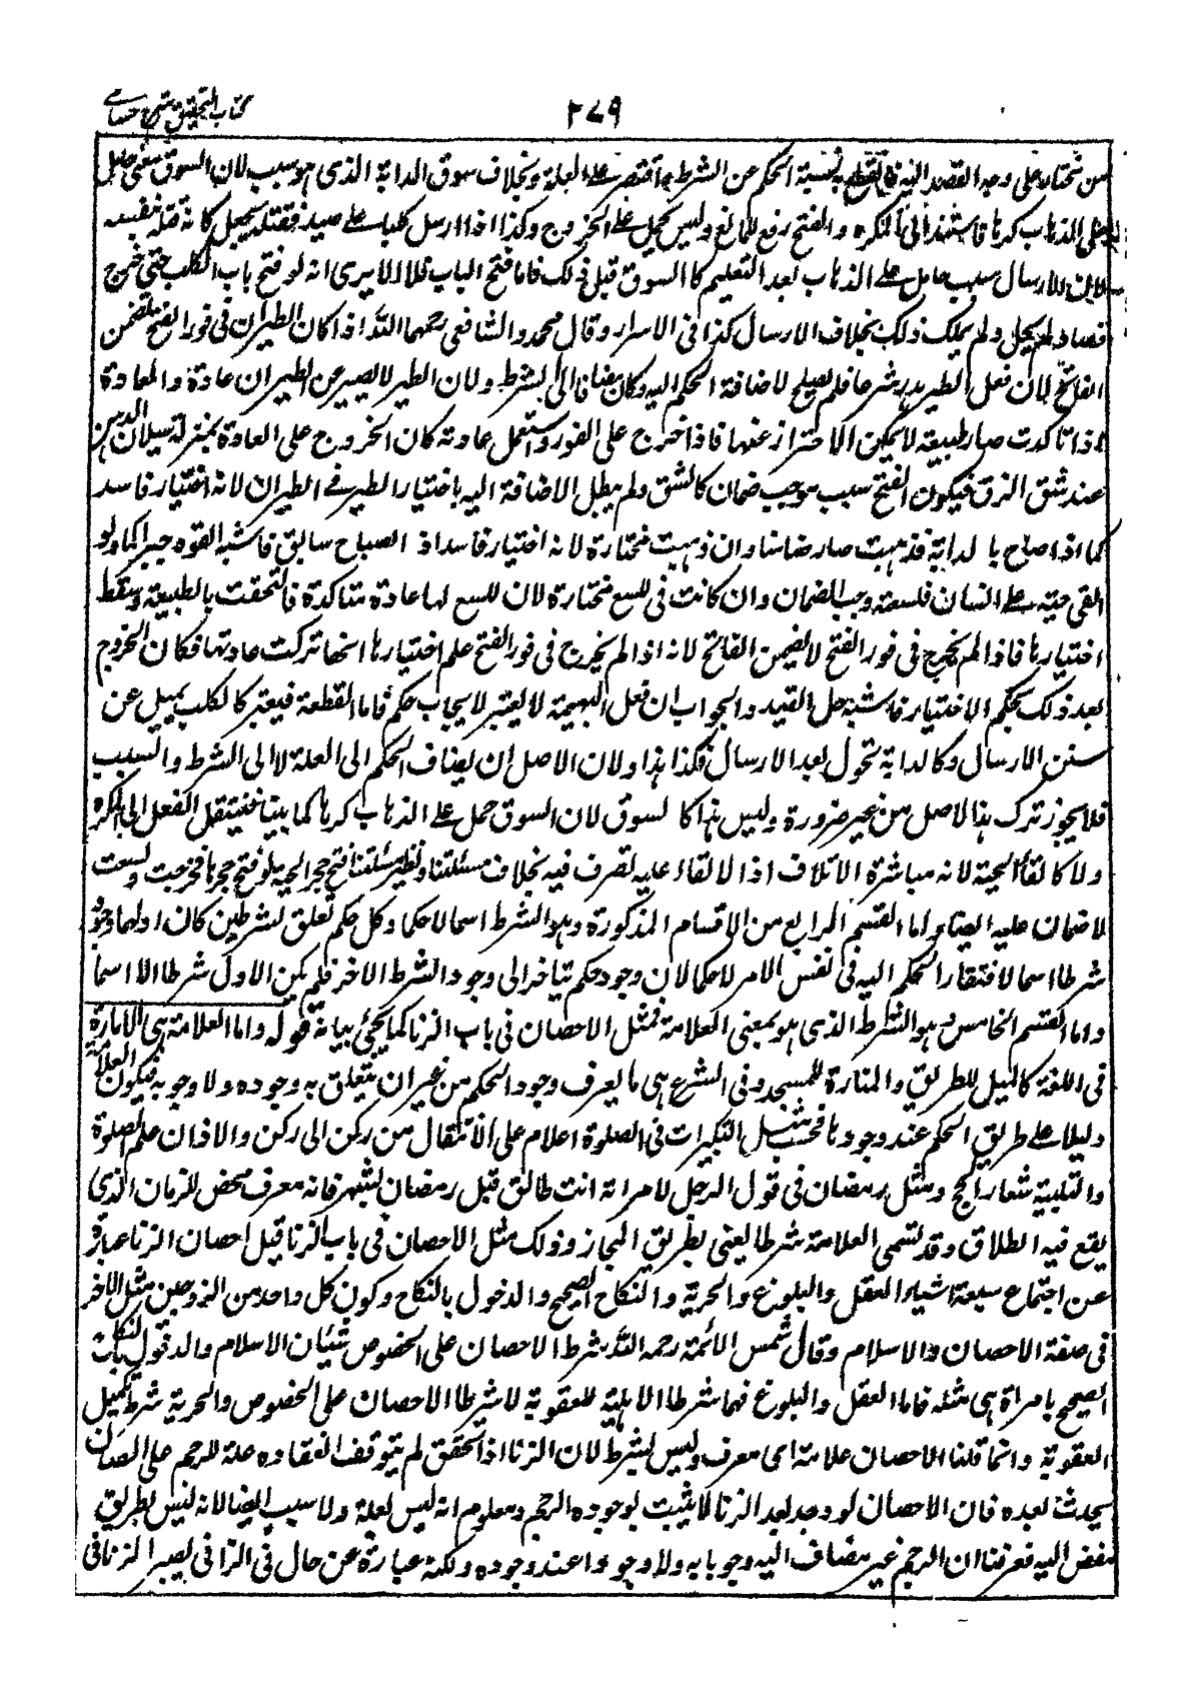 كتاب التحقيق شرح حسامى
٢٧٩
من مختار على وجه القصد اليه فانقطع به نسبة الحكم عن الشرط واقتصر على العلة وبخلاف سوق الدابة الذى هو سبب لان السوق معنى حامل
على الذهاب كرها فاستند الى المكره والفتح رفع للمانع وليس بحمل على الخروج وكذا اذا ارسل كلبا على صيد فقتله يحل كانه قتله بنفسه
لان الارسال سبب حامل على الذهاب بعد التعليم كالسوق قبل ذلك فاما فتح الباب فلا الا يرى انه لو فتح باب الكلب حتى خرج
فصاد لم يحل ولم يملك ذلك بخلاف الارسال كذا فى الاسرار وقال محمد والشافعى رحمهما الله اذا كان الطيران فى فور الفتح يضمن
الفاتح لان فعل الطير هدر شرعا فلم يصلح لاضافة الحكم اليه وكان مضافا الى الشرط ولان الطير لا يصبر عن الطيران عادة والعادة
اذا تاكدت صار طبيعة لا يمكن الاحتراز عنها فاذا خرج على الفور واستعمل عادته كان الخروج على العادة بمنزلة سيلان الدهن
عند شق الزق فيكون الفتح سبب موجب ضمان كالشق ولم يبطل الاضافة اليه باختيار الطير فى الطيران لانه اختيار فاسد
كما اذا صاح بالدابة فذهبت صار ضامنا وان ذهبت مختارة لانه اختيار فاسد اذ الصياح سائق فاشبه القوه جبرا كما ولو
القى حية على انسان فلسعته وجب الضمان وان كانت فى اللسع مختارة لان للسع لها عادة متاكدة فالتحقت بالطبيعة وسقط
اختيارها فاذا لم يخرج فى فور الفتح لا يضمن الفاتح لانه اذا لم يخرج فى فور الفتح علم اختيارها انها تركت عادتها فكان الخروج
بعد ذلك بحكم الاختيار فاشبه حل القيد والجواب ان فعل البهيمة لا يعتبر لايجاب حكم فاما لقطعه فيعتبر كالكلب يميل عن
سنن الارسال وكالدابة تجول بعد الارسال فكذا هذا ولان الاصل ان يضاف الحكم الى العلة لا الى الشرط والسبب
فلا يجوز ترك هذا الاصل من غير ضرورة وليس هذا كالسوق لان السوق حمل على الذهاب كرها كما بينا فينتقل الفعل الى المكره
ولا كالقاء الحية لانه مباشرة الاتلاف اذ الالقاء عليه تصرف فيه بخلاف مسئلتنا ونظير مسئلتنا فتح جحر الحية فلو فتح جحرها فخرجت ولسعت
لا ضمان عليه ايضا واما القسم الرابع من الاقسام المذكورة وهو الشرط اسما لا حكما وكل حكم تعلق بشرطين كان اولهما وجودا
شرطا اسما لافتقار الحكم اليه فى نفس الامر لا حكما لان وجود حكم يتاخر الى وجود الشرط الاخر فلم يكن الاول شرطا الا اسما
واما القسم الخامس وهو الشرط الذى هو بمعنى العلامة فمثل الاحصان فى باب الزنا كما يجئ بيانه قوله واما العلامة هى الامارة
فى اللغة كالميل للطريق والمنارة للمسجد وفى الشرع هى ما يعرف وجود الحكم من غير ان يتعلق به وجوده ولا وجوبه فيكون العلامة
دليلا على طريق الحكم عند وجودها فحسب مثل التكبيرات فى الصلوة اعلام على الانتقال من ركن الى ركن والاذان علم الصلوة
والتلبية شعار الحج ومثل رمضان فى قول الرجل لامراته انت طالق قبل رمضان بشهر فانه معرف محض للزمان الذى
يقع فيه الطلاق وقد تسمى العلامة شرطا يعنى بطريق المجاز وذلك مثل الاحصان فى باب الزنا قيل احصان الزنا عبارة
عن اجتماع سبعة اشياء العقل والبلوغ والحرية والنكاح الصحيح والدخول بالنكاح وكون كل واحد من الزوجين مثل الاخر
فى صفة الاحصان والاسلام وقال شمس الائمة رحمه الله شرط الاحصان على الخصوص شيئان الاسلام والدخول بالنكاح
الصحيح بامراة هى مثله فاما العقل والبلوغ فهما شرطا الاهلية للعقوبة لا شرطا الاحصان على الخصوص والحرية شرط تكميل
العقوبة وانما قلنا الاحصان علامة اى معرف وليس بشرط لان الزنا اذا تحقق لم يتوقف انعقاده علة للرجم على احصان
يحدث بعده فان الاحصان لو وجد بعد الزنا لا يثبت بوجوده الرجم ومعلوم انه ليس بعلة ولا سبب ايضا لانه ليس بطريق
مفض اليه فعرفنا ان الرجم غير مضاف اليه وجوبا به ولا وجودا عند وجوده ولكنه عبارة عن حال فى الزانى يصير الزنا فى